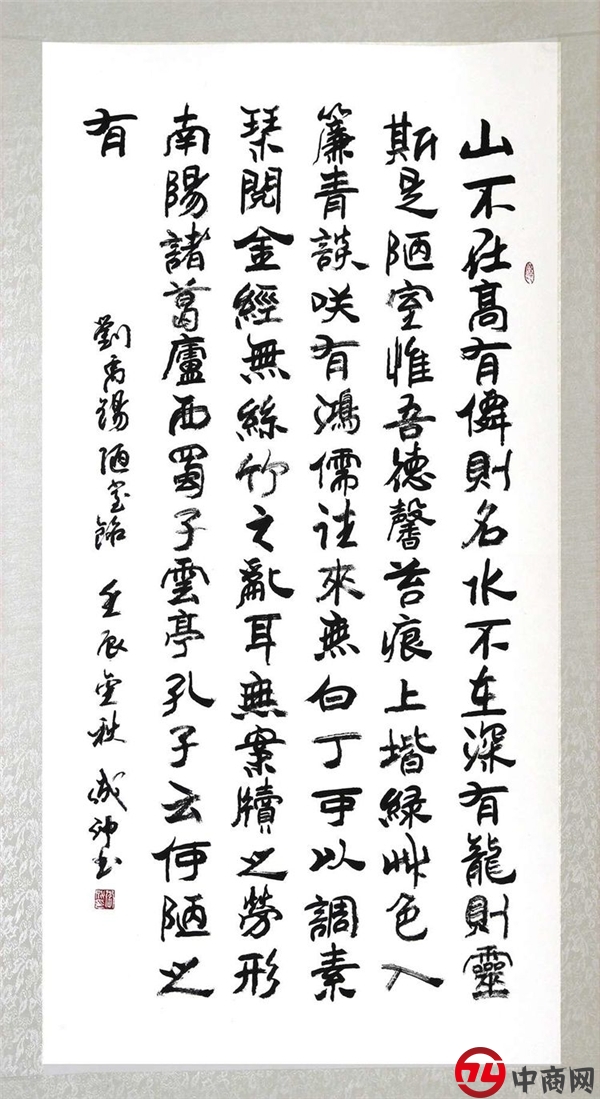 山不在高有僊則名水不在深有龍則靈
斯是陋室惟吾德馨苔痕上堦綠艸色入
簾青談咲有鴻儒往來無白丁可以調素
琹閱金經無絲竹之亂耳無案牘之勞形
南陽諸葛廬西蜀子雲亭孔子云何陋之
有
劉禹錫陋室銘 壬辰金秋 成
中商网